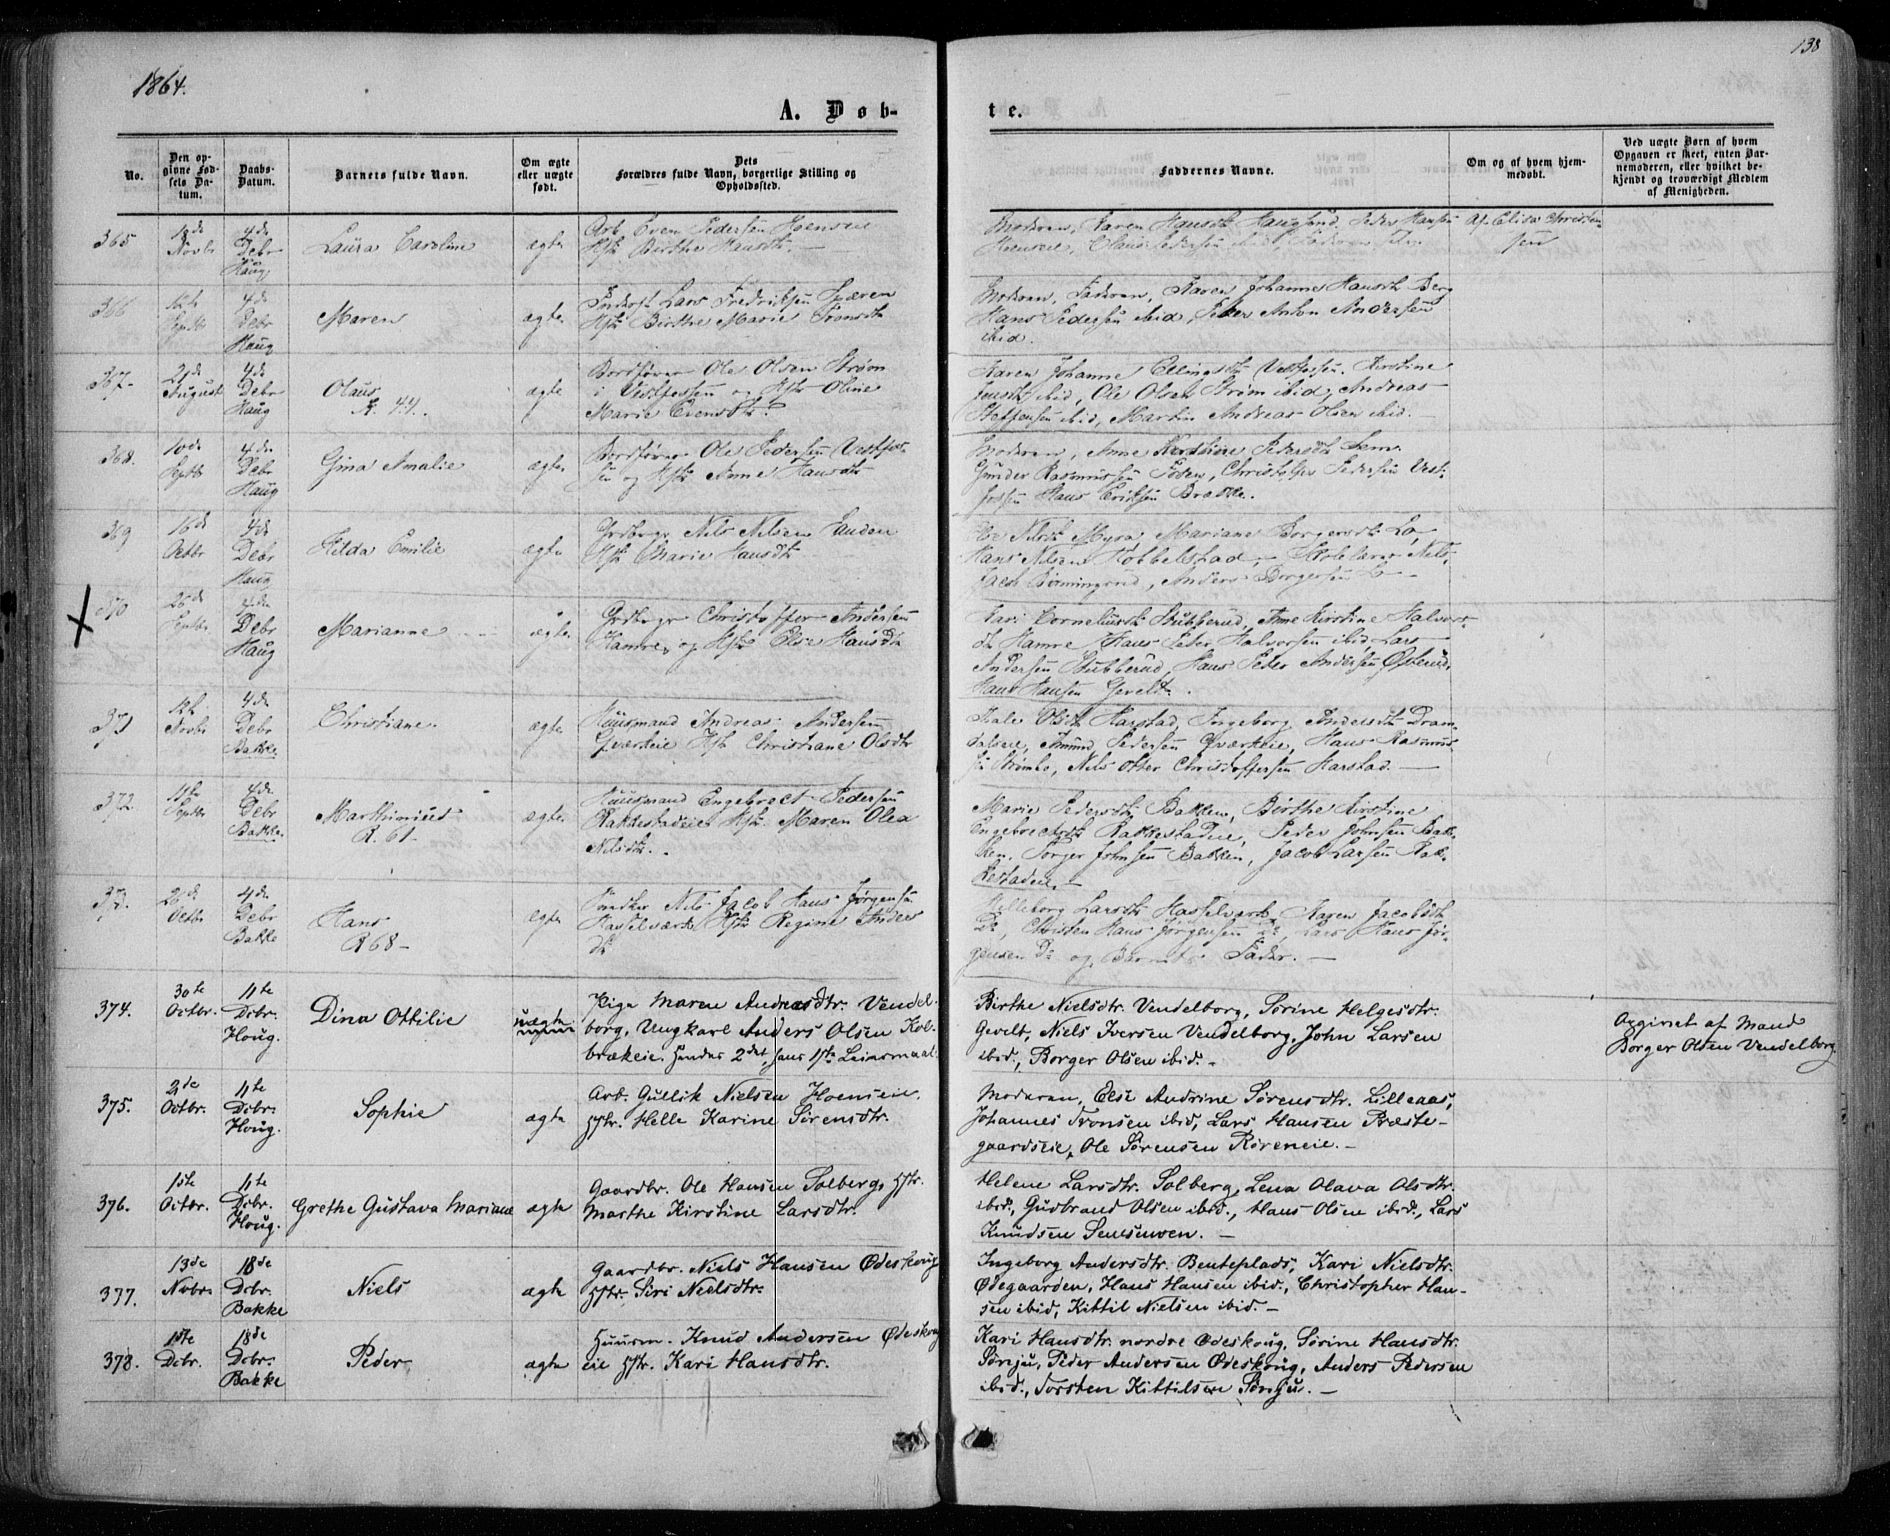 1864.
138
A. Døb-
te.
No.
Den op-
givne Fød-
sels Da-
tum.
Daabs-
Datum.
Barnets fulde Navn.
Om ægte
eller uægte
født.
Dets
Forældres fulde Navn, borgerlige Stilling og
Opholdssted.
Faddernes Navne.
Om og af hvem hjem-
medøbt.
Ved uægte Børn af hvem
Opgaven er skeet, enten Bar-
nemoderen, eller hvilket be-
kjendt og troværdigt Medlem
af Menigheden.
365
Novbr
4de
Debr
Haug
Laura Caroline
ægte
Arb. Even Pedersen Hoenseie
Hst. Birthe Hansdt.
Moderen, Karen Hansdt. Hauglund, Peder Hansen
Hoenseie, Olaus Pedersen
Af Elise Christen-
sen
366
12te
Septbr
4de
Debr
Haug
Maren
ægte
Lars Fredriksen
Hst. Birthe Marie
Moderen, Faderen, Karen Johanne Hansdt. Berg
Hans Pedersen ibid, Peder Anton Andersen
ibid.
367
21de
August
4de
Debr
Haug
Olaus
R. 44.
ægte
Bordtører Ole Olsen Strøm
i Vestfossen og Hst. Oline
Marie Evensdtr.
Karen Johanne Ellingsdt. Vestfossen, Kirstine
Jensdt. ibid, Ole Olsen Strøm ibid, Andreas
Steffensen ibid, Martin Andreas Olsen ibid.
368.
10de
Septbr
4de
Debr
Haug
Gina Amalie
ægte
Ole Pedersen Vestfos-
sen og Hst. Anne Hansdt.
Moderen, Anne Kirstine Pedersdt.
Gunder Rasmussen Foden, Christopher Pedersen Vest-
fossen Hans Eriksen Brække.
369
16de
Octbr
4de
Debr
Haug
Hilda Emilie
ægte
Grdbrgr. Nils Nilsen Landen
Hst. Marie Hansdt.
Myra, Mariane Borgersdt. Lo,
Hans Nilsen Hobbelstad, Skolelærer Nils
Jacob Bermingrud, Anders Borgersen Lo
370
26de
Septbr
4de
Debr
Haug
Marianne
ægte
Grdbrgr. Christoffer Andersen
Hamre, og Hst. Else Hansdt.
Kari Corneliusdt. Stubberud, Anne Kirstine Halvors-
dt. Hamre, Hans Peder Halvorsen ibid, Lars
Andersen Stubberud, Hans Peder Andersen Østerud,
Hans Hansen Gevelt.
371
12te
Novbr
4de
Debr
Bakke
Christiane.
ægte
Huusmand Andreas Andersen
Hst. Christiane Olsdtr
Olsdt. Harstad, Ingeborg Andersdt. Dram-
dalseie, Amund Pedersen Hans Rasmus-
sen Strømbo, Nils Otter Christoffersen Harstad.
372.
Septbr
4de
Debr
Bakke.
Marthinius
R. 61.
ægte
Huusmand Engebrect Pedersen
Rakkestadeie Hst. Maren Olea
Nilsdtr.
Marie Pedersdt. Bakken, Birthe Kirstine
Engebrectsdt. Rakkestadeie, Peder Johnsen Bak-
ken. Torger Johnsen Bakken, Jacob Larsen Rak-
kestadeie.
373.
26de
Octbr
4de
Debr
Bakke
Hans
R 68
ægte
Nils Jacob Hans Jørgensen
Hasselværk Hst. Regine Anders
dt.
Larsdt. Hasselværk, Karen Jacobsdt.
Do, Christen Hans Jørgensen Do, Lars Hans Jør-
gensen Do og Barnets Fader.
374.
30te
Octbr.
11te
Dcbr.
Houg.
Dina Ottilie
uægte
Pige Maren Andreasdtr. Vendel-
borg, Ungkarl Anders Olsen Kol-
brækeie. Hendes 2det hans 1ste Leiermaal.
Birthe Nielsdtr. Vendelborg, Sørine Helgesdtr.
Gevelt, Niels Iversen Vendelborg, John Larsen
ibid., Borger Olsen ibid.
Opgivet af Mand
Borger Olsen Vendelborg.
375.
2de
Octbr.
11te
Dcbr.
Houg.
Sophie
ægte
Arb. Gullik Nielsen Hoenseie.
Hstr. Helle Karine Sørensdtr.
Moderen, Else Andrine Sørensdtr. Lilleaas,
Johannes Tronsen ibid, Lars Hansen Præste-
gaardseie, Ole Sørensen Røreneie.
376.
15te
Octbr.
11te
Dcbr.
Houg.
Grethe Gustava Mariane
ægte
Gaardbr. Ole Hansen Solberg, Hstr.
Marthe Kirstine Larsdtr.
Helene Larsdtr. Solberg, Lena Olava Olsdtr.
ibid., Gudbrand Olsen ibid., Hans Olsen ibid., Lars
Knudsen
377.
13de
Novbr
18de
Dcbr.
Bakke
Niels
ægte
Gaardbr. Niels Hansen Ødeskoug
Hstr. Siri Nielsdtr.
Ingeborg Andersdtr. Benteplads, Kari Nielsdtr.
Ødegaarden, Hans Hansen ibid., Christopher Han-
sen ibid, Kittil Nielsen ibid.
378.
1ste
Dcbr.
18de
Dcbr.
Bakke
Peder
ægte
Huusm. Knud Andersen Ødeskoug
eie Hstr. Kari Hansdtr.
Kari Hansdtr. nordre Ødeskoug, Sørine Hansdtr.
Sønju, Peder Andersen Ødeskoug, Anders Pedersen
ibid., Torsten Kittilsen Sønju.